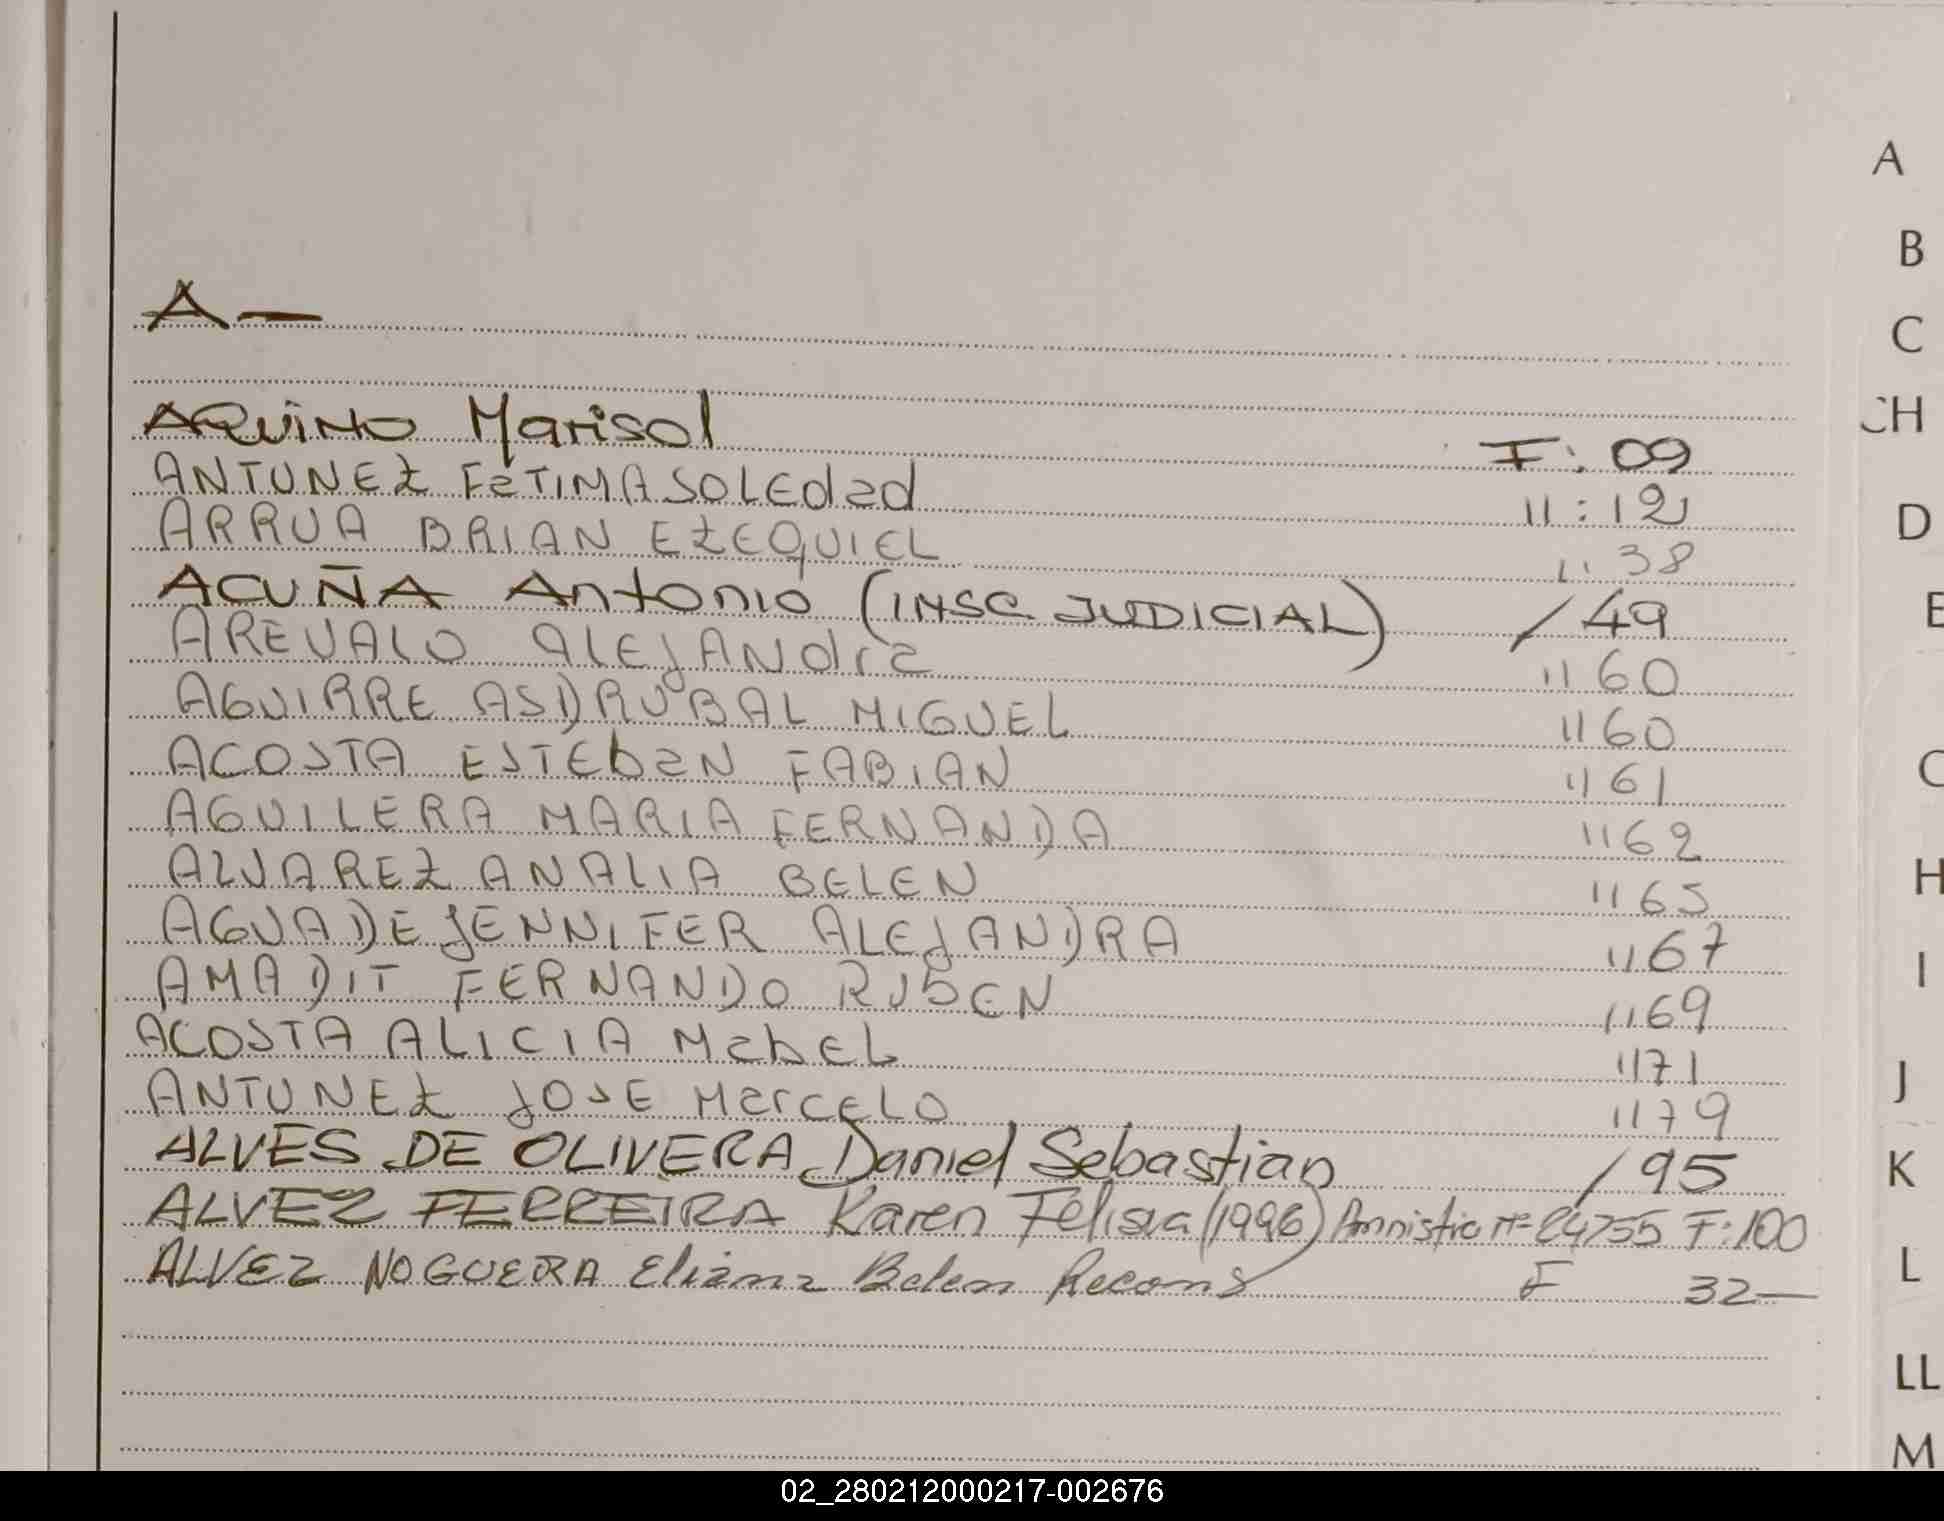 A-
AQUINO Marisol F: 09
ANTUNEZ FaTIMA SOLEdad 11: 12
ARRUA BRIAN EZEQUIEL 11 38
ACUÑA Antonio (INSC JUDICIAL) / 49
AREVALO ALEJANdra 11 60
AGUIRRE ASDRUBAL MIGUEL 11 60
ACOSTA ESTEbaN FABIAN 11 61
AGUILERA MARIA FERNANDA 11 62
ALVAREZ ANALIA BELEN 11 65
AGUADE JENNIFER ALEJANDRA 11 67
AMADIT FERNANDO RUbEN 11 69
ACOSTA ALICIA MabEL 11 71
ANTUNEZ JOSE MarcELO 11 79
ALVES DE OLIVERA Daniel Sebastian / 95
ALVEZ FERREIRA Karen Felisia (1996) Amnistia nº 24755 F: 100
ALVEZ NOGUERA Eliana Belen Recons F 32-
A
B
C
CH
D
E
H
I
J
K
L
LL
M
02_280212000217-002676